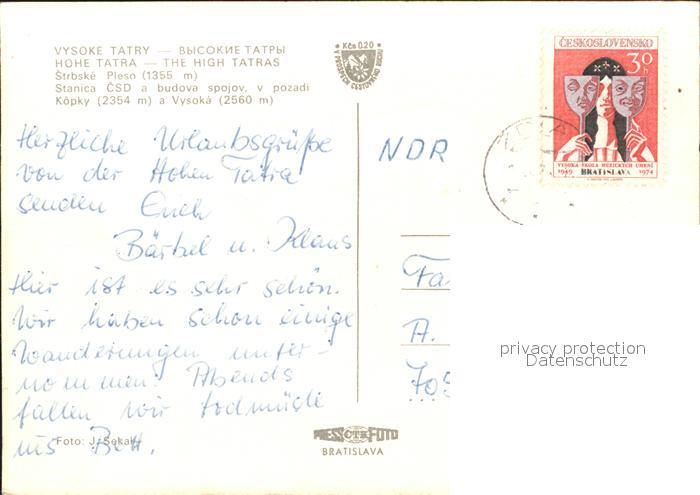 VYSOKE TATRY — ВЫСОКИЕ ТАТРЫ
HOHE TATRA — THE HIGH TATRAS
Štrbské Pleso (1355 m)
Stanica ČSD a budova spojov, v pozadí
Kôpky (2354 m) a Vysoká (2560 m)
Kčs 0.20
V PROSPECH CESTOVNÉHO RUCHU
ČESKOSLOVENSKO
30 h
VYSOKÁ ŠKOLA MÚZICKÝCH UMENÍ
1949 BRATISLAVA 1974
Herzliche Urlaubsgrüße
von der Hohen Tatra
senden Euch
Bärbel u. Klaus
Hier ist es sehr schön.
Wir haben schon einige
Wanderungen unter-
nommen. Abends
fallen wir todmüde
ins Bett.
NDR
Fa
A.
70
privacy protection
Datenschutz
Foto: J. Sekal
PRESSFOTO
BRATISLAVA